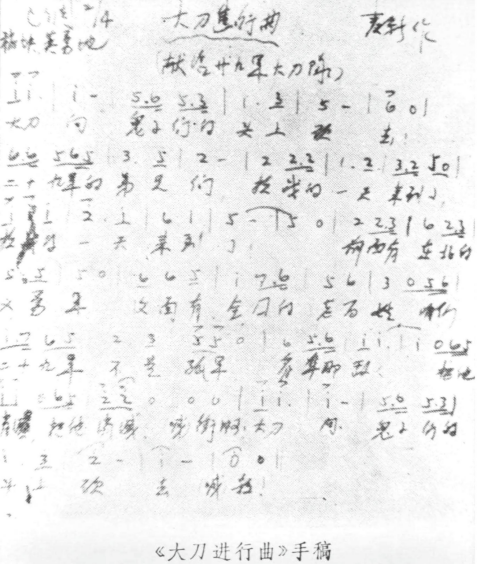 2/4 大刀进行曲 麦新作
英勇地
(献给廿九军大刀队)
i i. | i - | 5.6 5.3 | 1. 3 | 5 - | 6 0 |
大刀 向 鬼子们的 头上 砍 去!
6.6 565 | 3. 5 | 2 - | 2 2.2 | 1. 2 | 3.2 50 |
二十九军的 弟兄们 抗战的一天来到了
2 i | 6 i | 5 - | 5 0 | 2 2.3 | 6 2.3 |
抗战的一天来到了 前面有东北的
5.5 | 5 0 | 6 6 5 | i 7.6 | 5 6 | 3 0 5.6 |
义勇军 后面有全国的老百姓 咱们
i.7 6 5 2 3 5 5 0 | 6 5.6 | i i. | i 0 6 5
二十九军不是孤军 把他
65 2 2 0 0 0 | i i. | i - | 5.6 5.3 |
把他消灭 冲啊 大刀 向 鬼子们的
3 | 2 - | i - | 0 0 |
砍去 杀!
《大刀进行曲》手稿